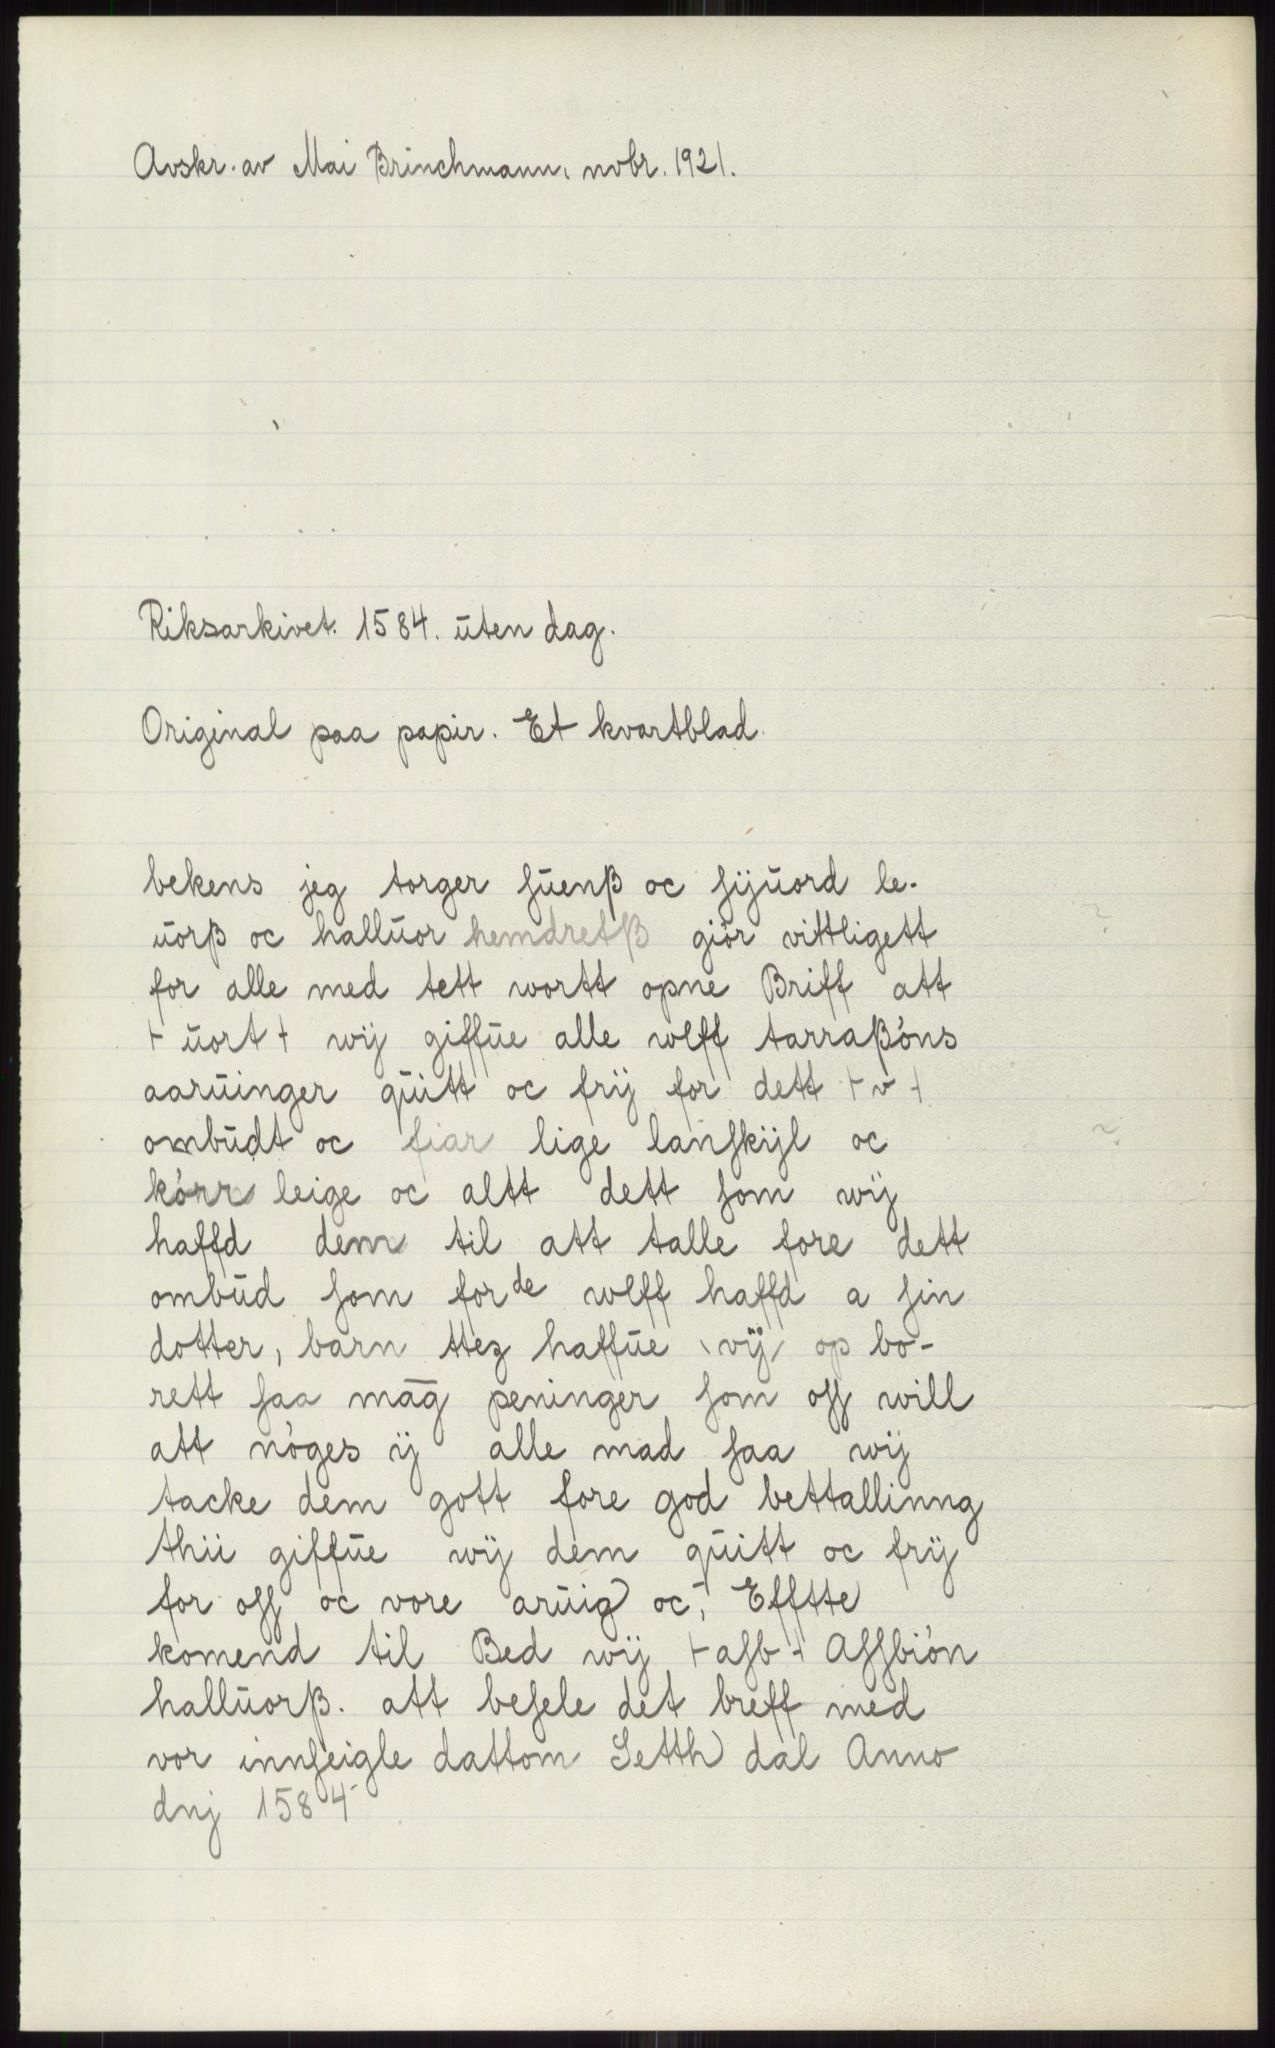 Avskr. av Mai Brinchmann, novbr. 1921.
Riksarkivet. 1584. uten dag.
Original paa papir. Et kvartblad.
bekens jeg torger suenß oc sijuord le-
uorß oc halluor hemdretß giör vittligett
for alle med tett wortt opne Briff att
⊢ uort ⊣ wij giffue alle wlff tarraßóns
aaruinger quitt oc frij for dett ⊢ v ⊣
ombudt oc fiar lige lanskijl oc
kórr leige oc altt dett som wij
haffd dem til att talle fore dett
ombud som forde wlff haffd a sin
dotter, barn ttez haffue vij op bo-
rett saa māg peninger som oss will
att nóges ij alle mad saa wij
tacke dem gott fore god bettallinng
thii giffue wij dem quitt oc frij
for oss oc vore aruig oc, Efftte
komend til Bed wij ⊢ asb ⊣ Assbión
halluorß. att besele det breff med
vor innseigle dattom Setth dal Anno
dnj 1584